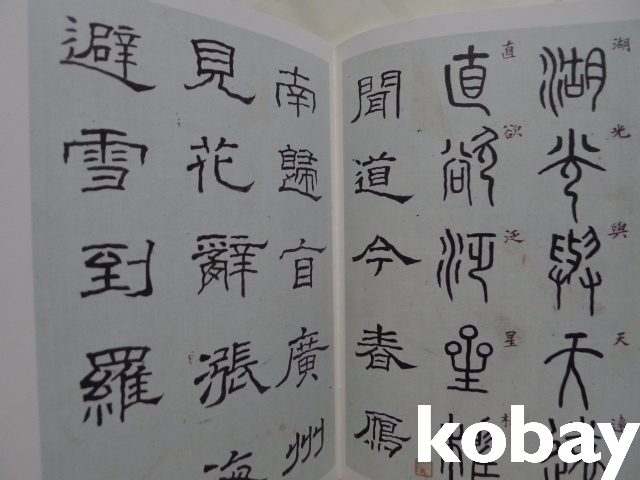 湖光與天遠
湖光與天
直欲泛星
直欲泛星
聞道今春鴈
南歸自廣州
見花辭漲海
避雪到羅
kobay